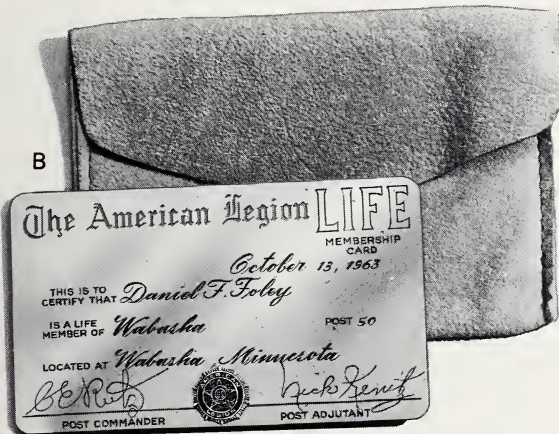 B
The American Legion LIFE
MEMBERSHIP
CARD
October 13, 1963
THIS IS TO
CERTIFY THAT Daniel F. Foley
IS A LIFE
MEMBER OF Wabasha POST 50
LOCATED AT Wabasha Minnesota
Nick
POST COMMANDER POST ADJUTANT